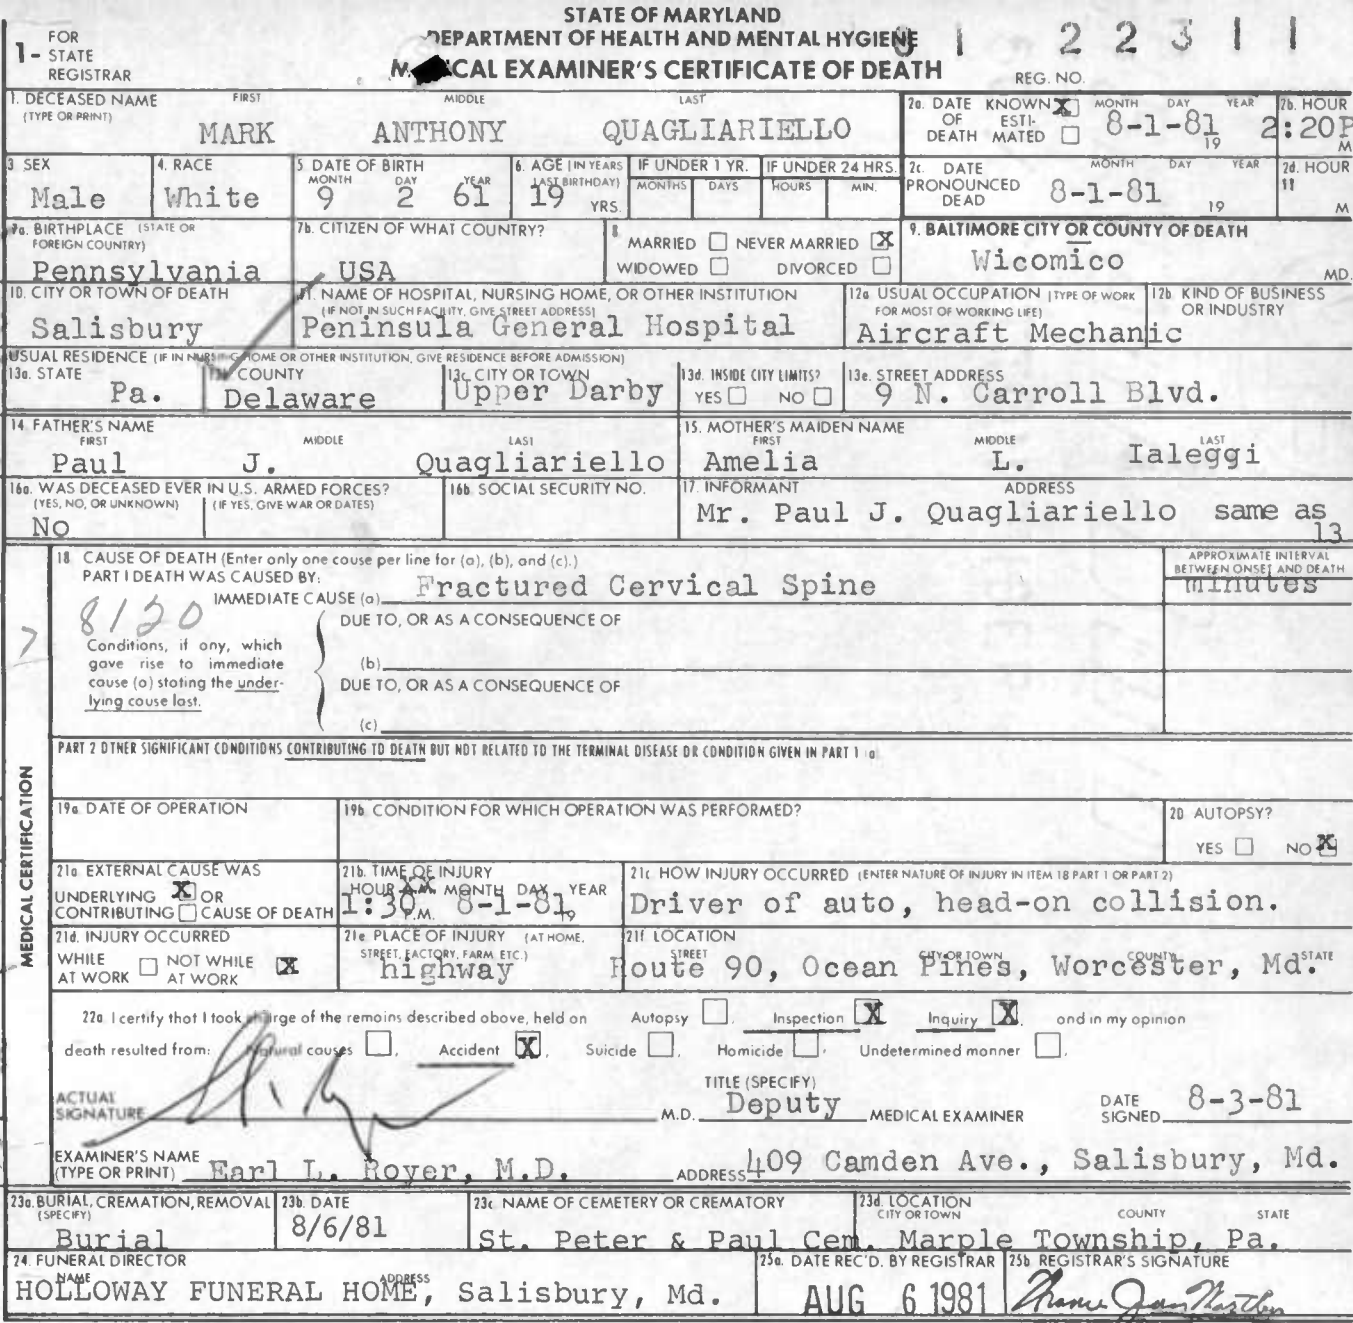 STATE OF MARYLAND
FOR STATE REGISTRAR
1-
DEPARTMENT OF HEALTH AND MENTAL HYGIENE
CAL EXAMINER'S CERTIFICATE OF DEATH
REG. NO. 1 22311
1. DECEASED NAME (TYPE OR PRINT) FIRST MIDDLE LAST
MARK ANTHONY QUAGLIARIELLO
2a. DATE OF DEATH KNOWN X ESTIMATED MONTH DAY YEAR 8-1-81 19
2b. HOUR 2:20P M
3. SEX Male
4. RACE White
5. DATE OF BIRTH MONTH DAY YEAR 9 2 61
6. AGE (IN YEARS LAST BIRTHDAY) 19 YRS.
IF UNDER 1 YR. MONTHS DAYS
IF UNDER 24 HRS. HOURS MIN.
2c. DATE PRONOUNCED DEAD MONTH DAY YEAR 8-1-81 19
2d. HOUR " M
7a. BIRTHPLACE (STATE OR FOREIGN COUNTRY) Pennsylvania
7b. CITIZEN OF WHAT COUNTRY? USA
8. MARRIED NEVER MARRIED X WIDOWED DIVORCED
9. BALTIMORE CITY OR COUNTY OF DEATH Wicomico MD.
10. CITY OR TOWN OF DEATH Salisbury
11. NAME OF HOSPITAL, NURSING HOME, OR OTHER INSTITUTION (IF NOT IN SUCH FACILITY, GIVE STREET ADDRESS) Peninsula General Hospital
12a USUAL OCCUPATION (TYPE OF WORK FOR MOST OF WORKING LIFE) Aircraft Mechanic
12b. KIND OF BUSINESS OR INDUSTRY
USUAL RESIDENCE (IF IN NURSING HOME OR OTHER INSTITUTION, GIVE RESIDENCE BEFORE ADMISSION)
13a. STATE Pa.
COUNTY Delaware
13c. CITY OR TOWN Upper Darby
13d. INSIDE CITY LIMITS? YES NO
13e. STREET ADDRESS 9 N. Carroll Blvd.
14. FATHER'S NAME FIRST MIDDLE LAST
Paul J. Quagliariello
15. MOTHER'S MAIDEN NAME FIRST MIDDLE LAST
Amelia L. Ialeggi
16a. WAS DECEASED EVER IN U.S. ARMED FORCES? (YES, NO, OR UNKNOWN) (IF YES, GIVE WAR OR DATES) No
16b. SOCIAL SECURITY NO.
17. INFORMANT ADDRESS
Mr. Paul J. Quagliariello same as 13
MEDICAL CERTIFICATION
18. CAUSE OF DEATH (Enter only one cause per line for (a), (b), and (c).)
PART I DEATH WAS CAUSED BY:
IMMEDIATE CAUSE (a) Fractured Cervical Spine
APPROXIMATE INTERVAL BETWEEN ONSET AND DEATH minutes
8120
7
Conditions, if any, which gave rise to immediate cause (a) stating the underlying cause last.
DUE TO, OR AS A CONSEQUENCE OF
(b)
DUE TO, OR AS A CONSEQUENCE OF
(c)
PART 2 OTHER SIGNIFICANT CONDITIONS CONTRIBUTING TO DEATH BUT NOT RELATED TO THE TERMINAL DISEASE OR CONDITION GIVEN IN PART 1 (a)
19a. DATE OF OPERATION
19b. CONDITION FOR WHICH OPERATION WAS PERFORMED?
20 AUTOPSY? YES NO X
21a EXTERNAL CAUSE WAS UNDERLYING X OR CONTRIBUTING CAUSE OF DEATH
21b. TIME OF INJURY HOUR A.M. MONTH DAY YEAR 1:30 P.M. 8-1-81 19
21c HOW INJURY OCCURRED (ENTER NATURE OF INJURY IN ITEM 18 PART 1 OR PART 2)
Driver of auto, head-on collision.
21d. INJURY OCCURRED WHILE AT WORK NOT WHILE AT WORK X
21e PLACE OF INJURY (AT HOME, STREET, FACTORY, FARM ETC.) highway
21f LOCATION STREET CITY OR TOWN COUNTY STATE
Route 90, Ocean Pines, Worcester, Md.
22a. I certify that I took charge of the remains described above, held on Autopsy , Inspection X , Inquiry X , and in my opinion
death resulted from: Natural causes , Accident X , Suicide , Homicide , Undetermined manner .
ACTUAL SIGNATURE M.D.
TITLE (SPECIFY) Deputy MEDICAL EXAMINER
DATE SIGNED 8-3-81
EXAMINER'S NAME (TYPE OR PRINT) Earl L. Royer, M.D.
ADDRESS 409 Camden Ave., Salisbury, Md.
23a. BURIAL, CREMATION, REMOVAL (SPECIFY) Burial
23b. DATE 8/6/81
23c. NAME OF CEMETERY OR CREMATORY St. Peter & Paul Cem.
23d. LOCATION CITY OR TOWN COUNTY STATE Marple Township, Pa.
24. FUNERAL DIRECTOR NAME ADDRESS
HOLLOWAY FUNERAL HOME, Salisbury, Md.
25a. DATE REC'D. BY REGISTRAR AUG 6 1981
25b. REGISTRAR'S SIGNATURE